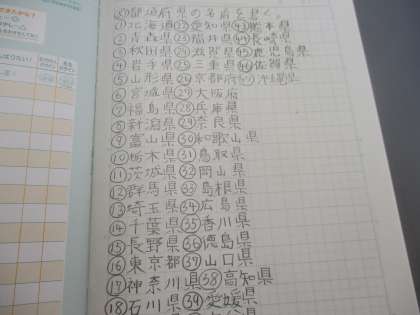 都道府県の名前を書く
①北海道㉒愛知県㊸熊本県
②青森県㉓福井県㊹長崎県
③秋田県㉔滋賀県㊺鹿児島県
④岩手県㉕三重県㊻佐賀県
⑤山形県㉖京都府㊼沖縄県
⑥宮城県㉗大阪府
⑦福島県㉘兵庫県
⑧新潟県㉙奈良県
⑨富山県㉚和歌山県
⑩栃木県㉛鳥取県
⑪茨城県㉜岡山県
⑫群馬県㉝島根県
⑬埼玉県㉞広島県
⑭千葉県㉟香川県
⑮長野県㊱徳島県
⑯東京都㊲山口県
⑰神奈川県㊳高知県
⑱石川県㊴愛媛県